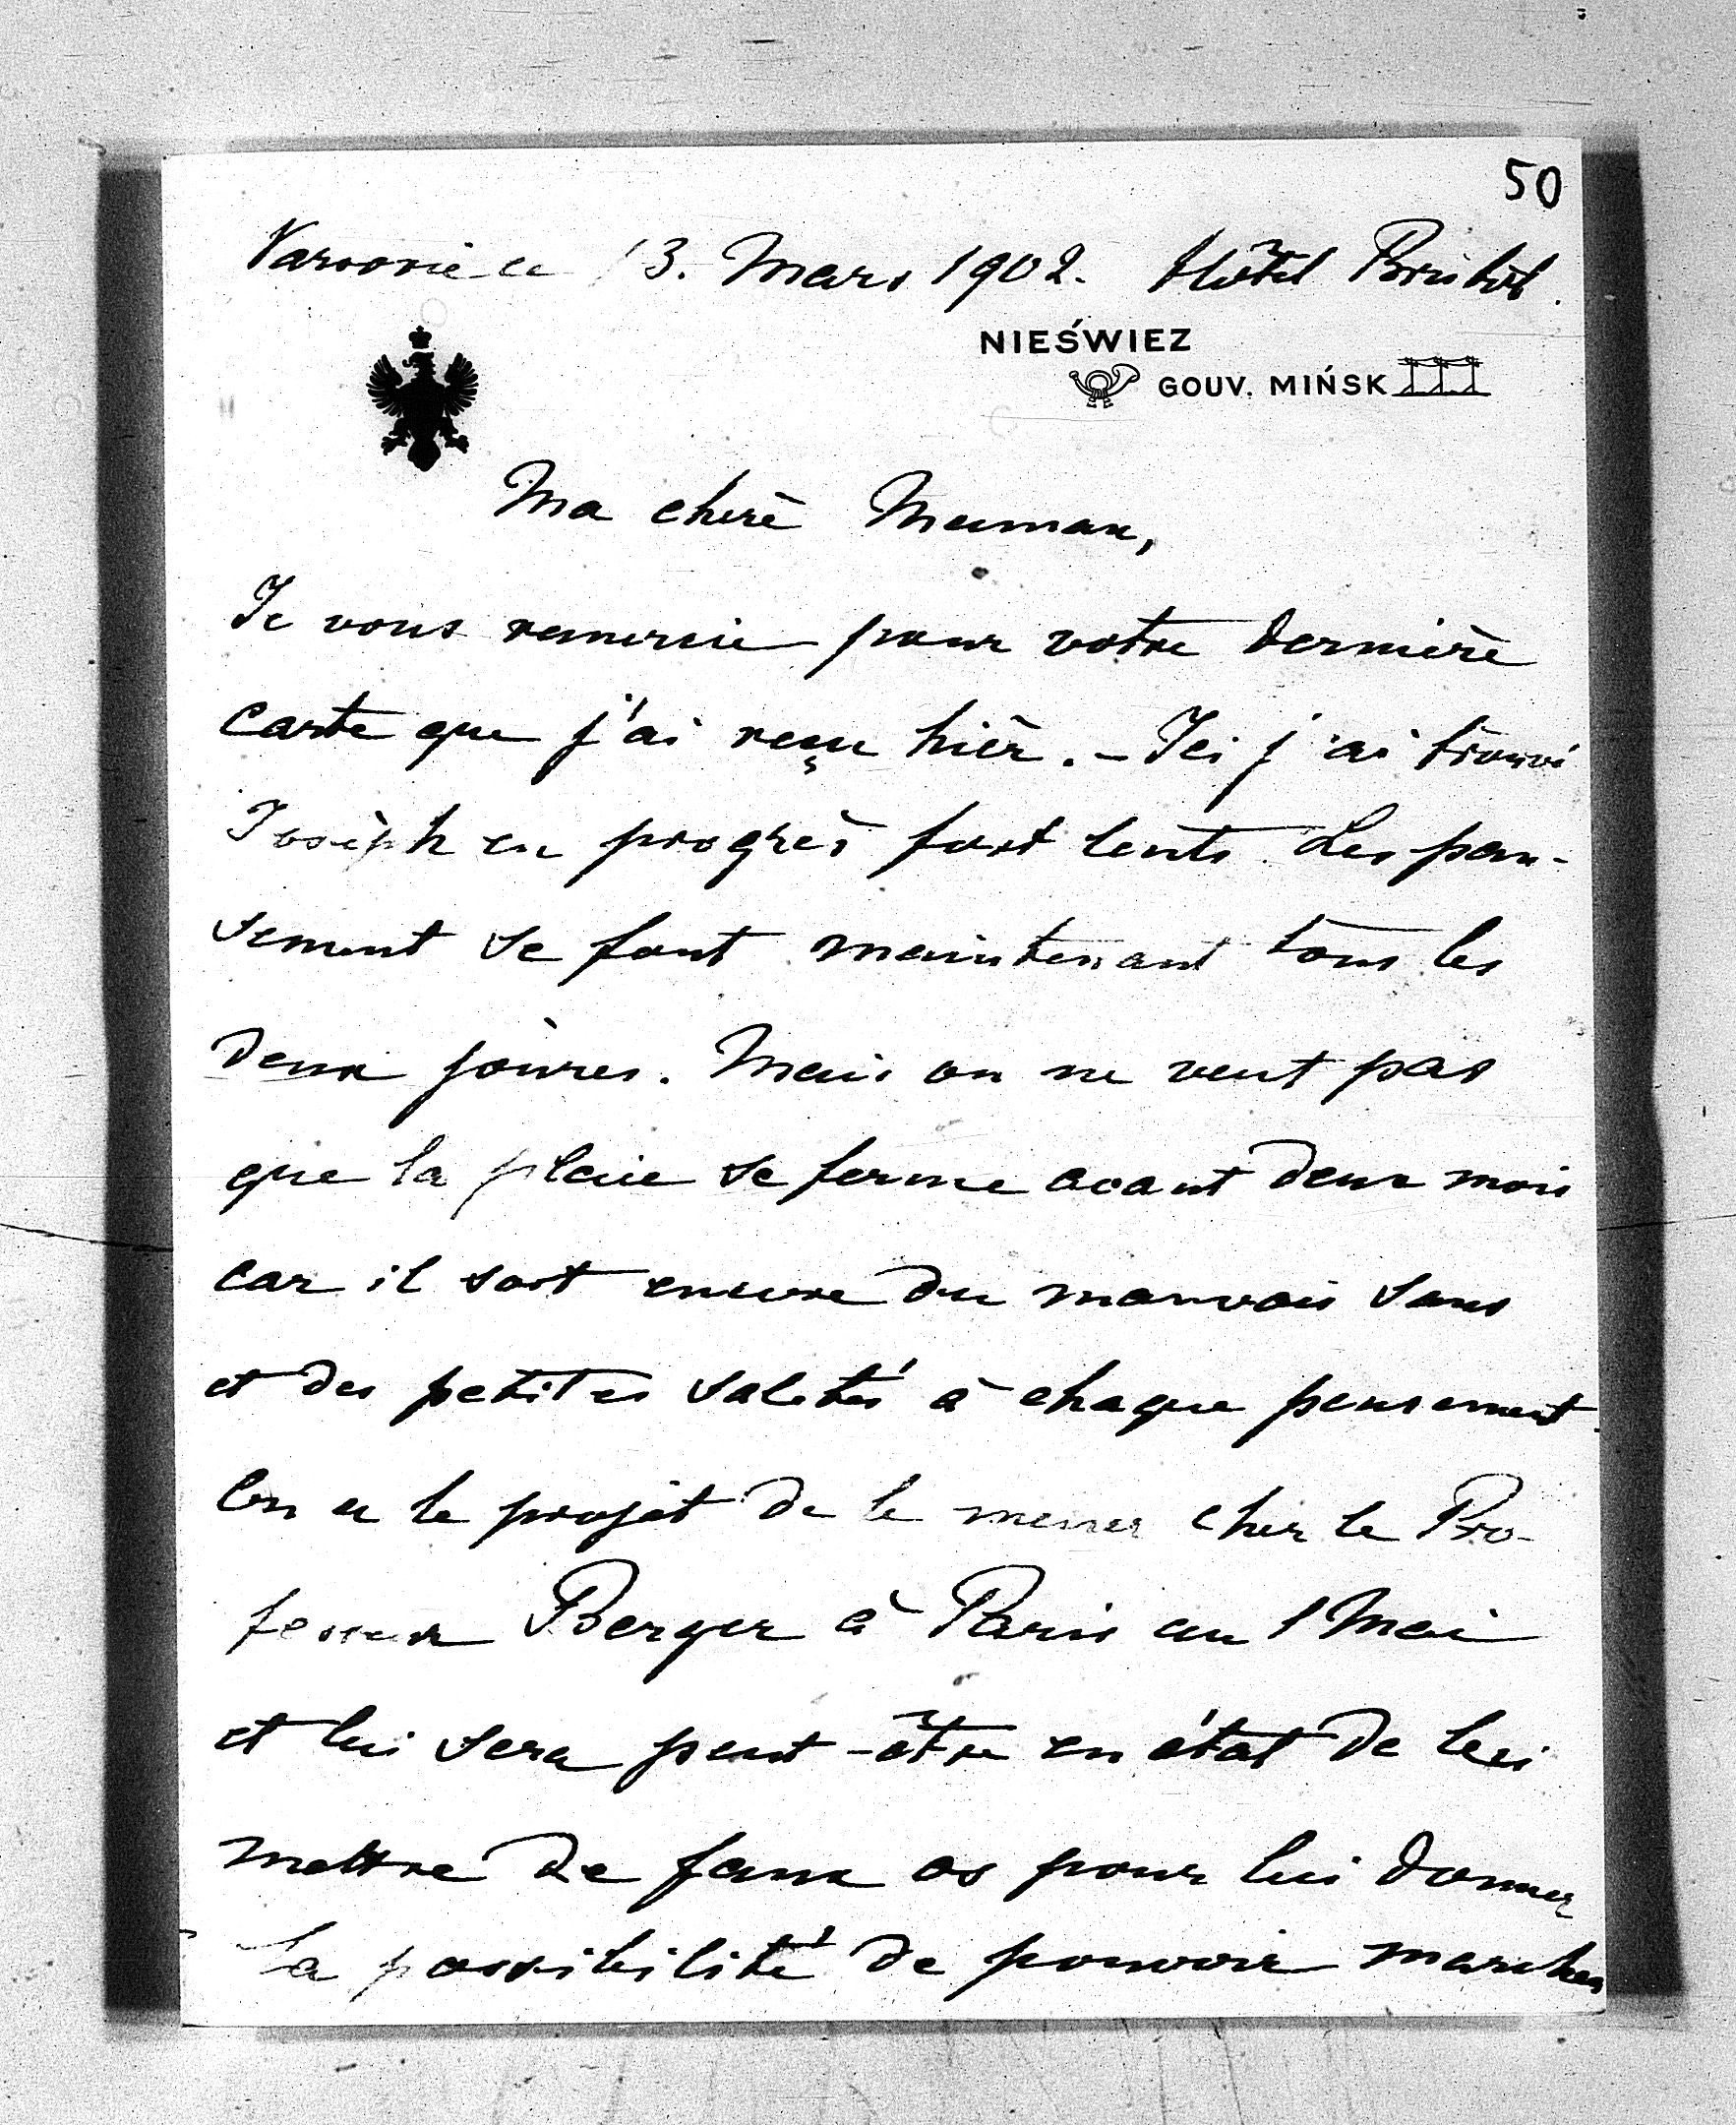 50
Varsovie le 13. Mars 1902. Hôtel Bristol.
NIEŚWIEZ
GOUV. MIŃSK
Ma cherè Maman,
Je vous remercie pour votre dernière
carte que j'ai reçu hièr. - Ici j'ai trouvé
Josèph en progrès fort lents. Les pan-
sement se font maintenant tous les
deux joures. Mais on ne veut pas
que la plaie se ferme avant deux mois
car il sort encore du mauvais sang
et des petites saletés à chaque pensement.
On a le projèt de le mener chez le Pro-
fesseur Berger à Paris au 1 Mai
et lui sera peut-être en état de lui
mettre de faux os pour lui donner
la possibilité de pouvoir marcher